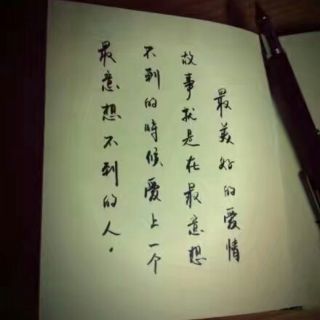 最美好的爱情
故事就是在最意想
不到的時候爱上一个
最意想不到的人。